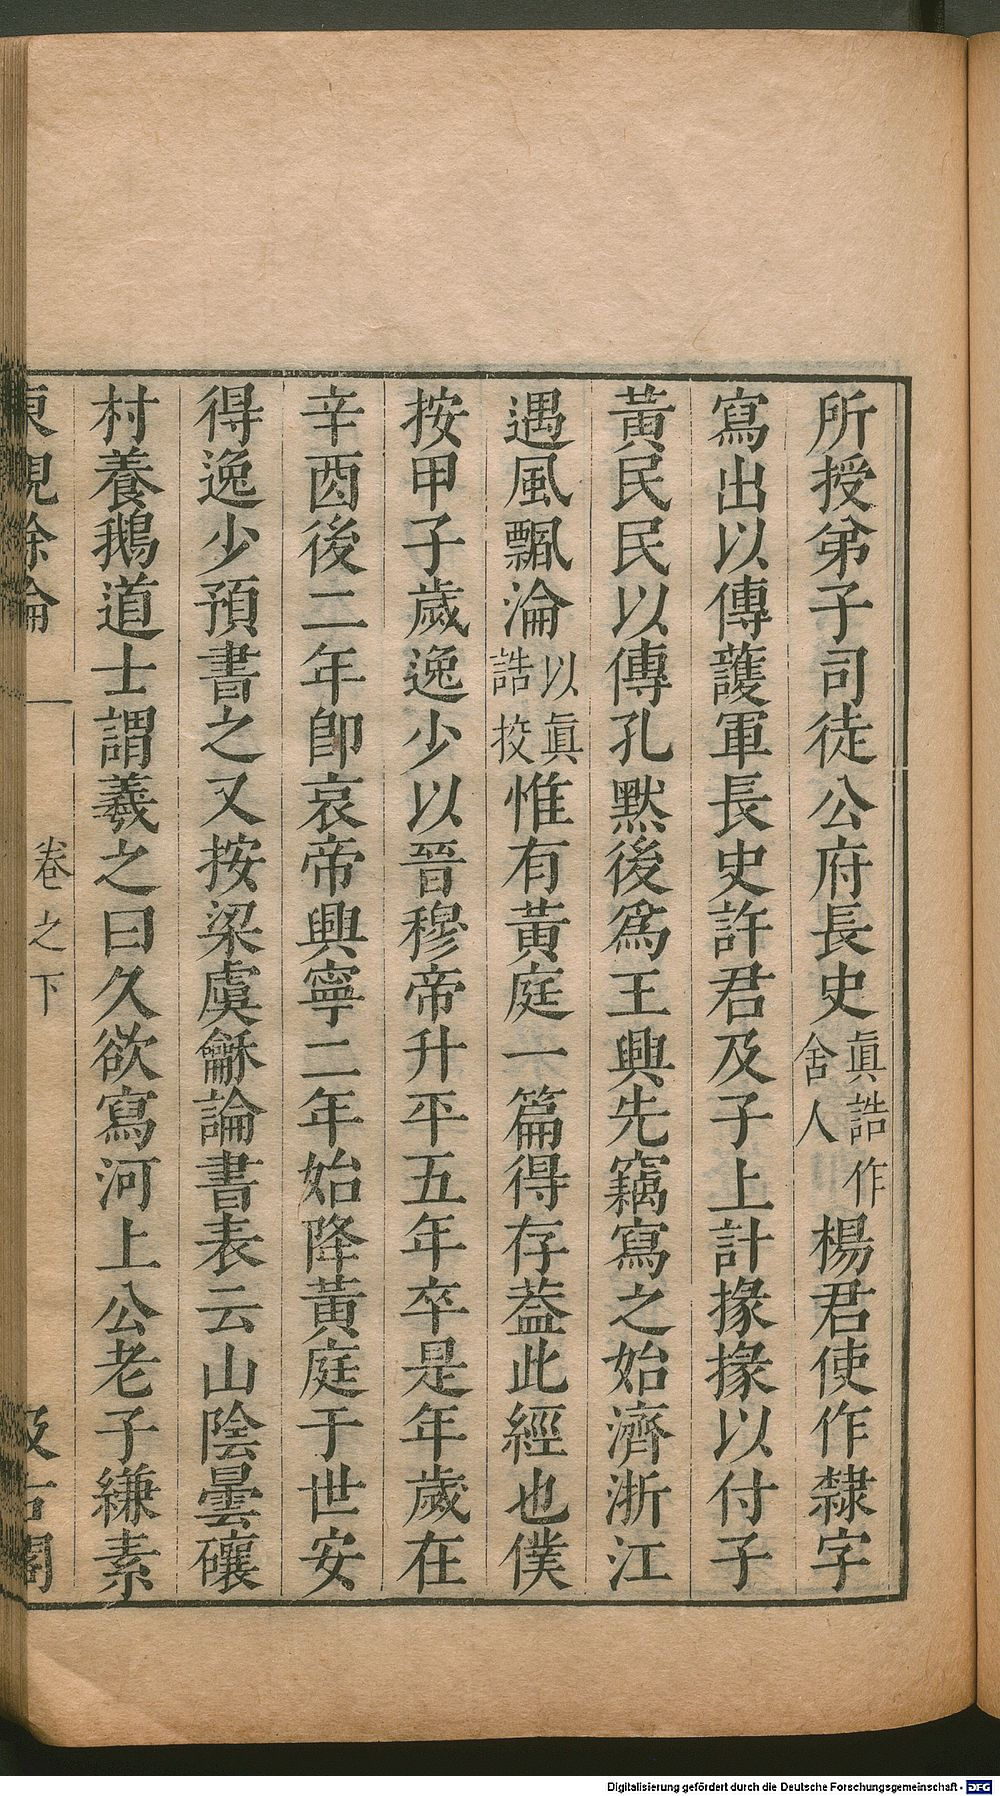 所授弟子司徒公府長史眞誥作舍人楊君使作隸字
寫出以傳護軍長史許君及子上計掾掾以付子
黃民民以傳孔默後爲王興先竊寫之始濟浙江
遇風飄淪以眞誥挍惟有黃庭一篇得存葢此經也僕
按甲子歲逸少以晉穆帝升平五年卒是年歲在
辛酉後二年卽哀帝興寧二年始降黃庭于世安
得逸少預書之又按梁虞龢論書表云山陰曇礦
村養鵝道士謂羲之曰久欲寫河上公老子縑素
東觀餘論 卷之下 汲古閣
Digitalisierung gefördert durch die Deutsche Forschungsgemeinschaft - DFG